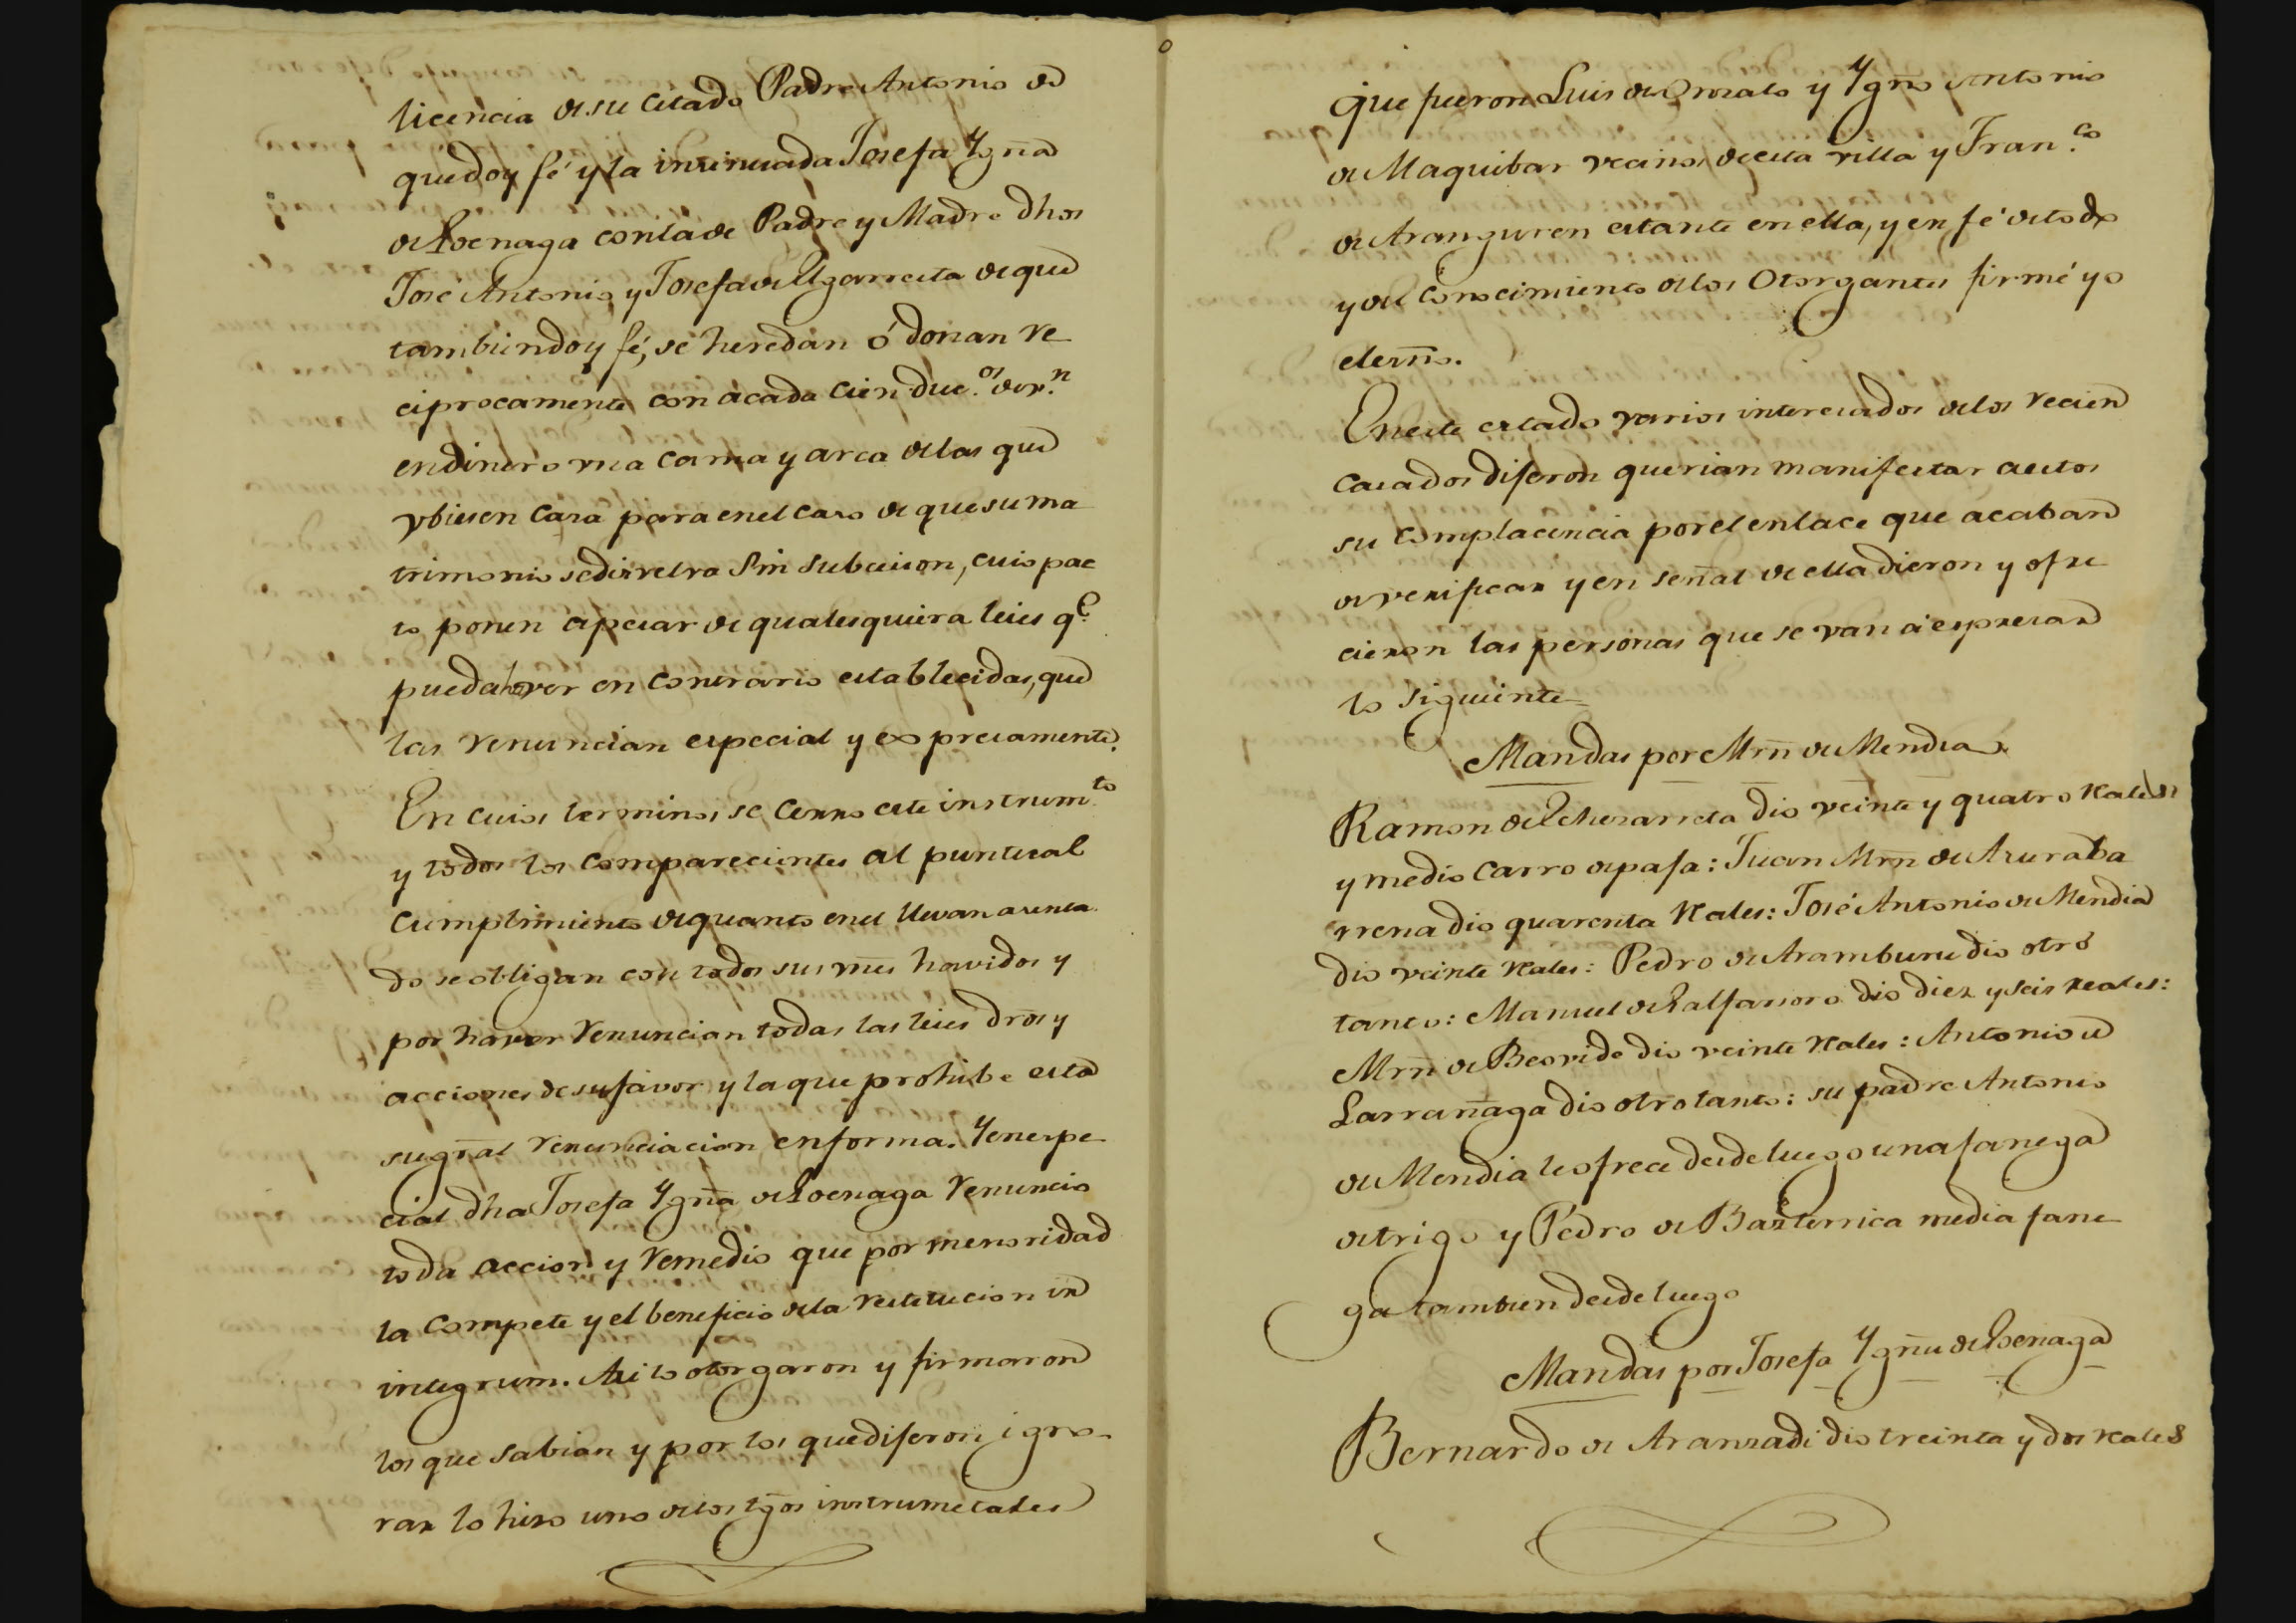 licencia de su citado Padre Antonio de
que doy fé y la insinuada Josefa Ygñа
de Loenaga con la de Padre y Madre dhos
José Antonio y Josefa de Ugarrieta de que
tambien doy fé, se heredan ó donan re
ciprocamente con acada cien duc.os de v.n
en dinero una cama y arca de las que
ubiesen casa para en el caso de que su ma
trimonio se disuelva sin subcecion, cuio pac
to ponen apesar de qualesquiera leies q.e
pueda haver en contrario establecidas, que
las renuncian especial y expresamente.
En cuios terminos se cerro este instrum.to
y todos los comparecientes al puntual
cumplimiento de quanto en el llevan asenta
do se obligan con todos sus vnes havidos y
por haver renuncian todas las leies drõs y
acciones de su favor y la que prohibe esta
su gral renunciacion en forma. Y en espe
cial dha Josefa Ygña de Loenaga renuncio
toda accion y remedio que por menoridad
la compete y el beneficio de la restitucion in
integrum. Asi lo otorgaron y firmaron
los que sabian y por los que dijeron igno-
rar lo hizo uno de los tgos instrumetales
que fueron Luis de Orozalo y Ygnõ Antonio
de Maquibar vecinos de esta villa y Fran.co
de Aranguren estante en ella, y en fé de todo
y del conocimiento de los Otorgantes firmé yo
el esrño.
En este estado varios interesados de los recien
casados dijeron querian manifestar a estos
su complacencia por el enlace que acaban
de verificar y en señal de ella dieron y ofre
cieron las personas que se van á espresar
lo siguiente
Mandas por Mrñ de Mendia
Ramon de Echezarreta dio veinte y quatro reales
y medio carro de paja: Juan Mrñ de Azuraba
rrena dio quarenta reales: José Antonio de Mendia
dio veinte reales: Pedro de Aramburu dio otro
tanto: Manuel de Galfarsoro dio diez y seis reales:
Mrñ de Beovide dio veinte reales: Antonio de
Larrañaga dio otro tanto: su padre Antonio
de Mendia le ofrece desde luego una fanega
de trigo y Pedro de Bazterrica media fane
ga tambien desde luego
Mandas por Josefa Ygña de Loenaga
Bernardo de Aranzadi dio treinta y dos reales